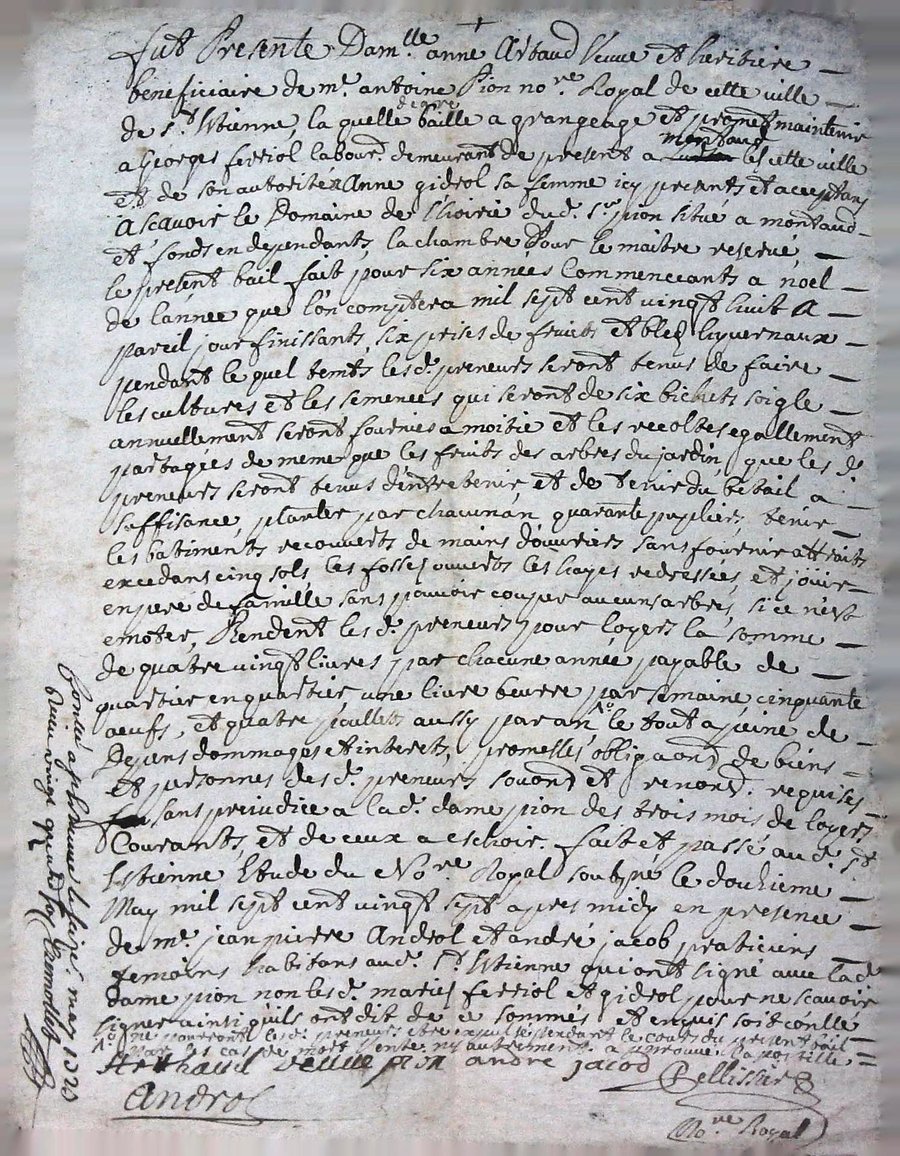 fut Presente Dam.lle anne Arbaud Veuve et heritiere
beneficiaire de m.e antoine Pion no.re Royal de cette ville
de S.t Estienne, la quelle baille a grangeage et promet maintenir
a Georges ferriol labour.r demeurant de present a montaud les cette ville
et de son autorité Anne gidrol sa femme icy presents et acceptans
Ascavoir le Domaine de l'hoirie dud. s.r pion situé a montaud
et fonds en dependants, la chambre pour le maitre reservé,
le present bail fait pour six années Commencants a noel
de lannée que l'on comptera mil sept cent vingt huit a
pareil jour finissants, six prises de fruits et bleds hyvernaux
pendant le quel temts les d. preneurs seront tenus de faire
les cultures et les semences qui seront de six bichets soigle
annuellement seront fournies a moitie et les recoltes egallement
partagées de meme que les fruits des arbres du jardin, que les d.
preneurs seront tenus d'entretenir, et de tenir du betail a
suffisance, planter par chacun an quarante puplier, tenir
les batiments recouverts de mains d'ouvriers sans fournir attraits
excedans cinq sols, les fosses ouverts les hayes redressées, et jouir
en pere de famille sans pouvoir couper aucuns arbres, si ce n'est
emoter, Rendent les d. preneurs pour loyers la somme
de quatre vingt livres par chacune année payable de
quartier en quartier une livre beurre par semaine cinquante
oeufs, et quatre poullets aussy par an 1º le tout a peine de
Depens dommages et interets, promesses obliga.ond de biens
et personnes des d. preneurs soumond et renond. requises
sans prejudice a la d. dame pion des trois mois de loyers
Courants, et de ceux a eschoir. fait et passé aud. S.t
Estienne Etude du No.re Royal soubz.né le douzieme
May mil sept cent vingt sept apres midy en presence
de m.e jean pierre Androl et andré jacob praticiens
temoins habitans aud. S.t Estienne qui ont signé avec lad.
dame pion non les d. mariés ferriol et gidrol pour ne scavoir
signer ainsi qu'ils ont dit de ce sommés et enquis soit conllé
1º ne pourront les d. preneurs etre expulses pendant le cours du present bail
les cas de mort vente ny autrement. aprouvé la postille
Arthaud Veuve pion andre jacob
Pellissier
Androl
No.re Royal
Conllé a S.t Etienne le seize may 1727